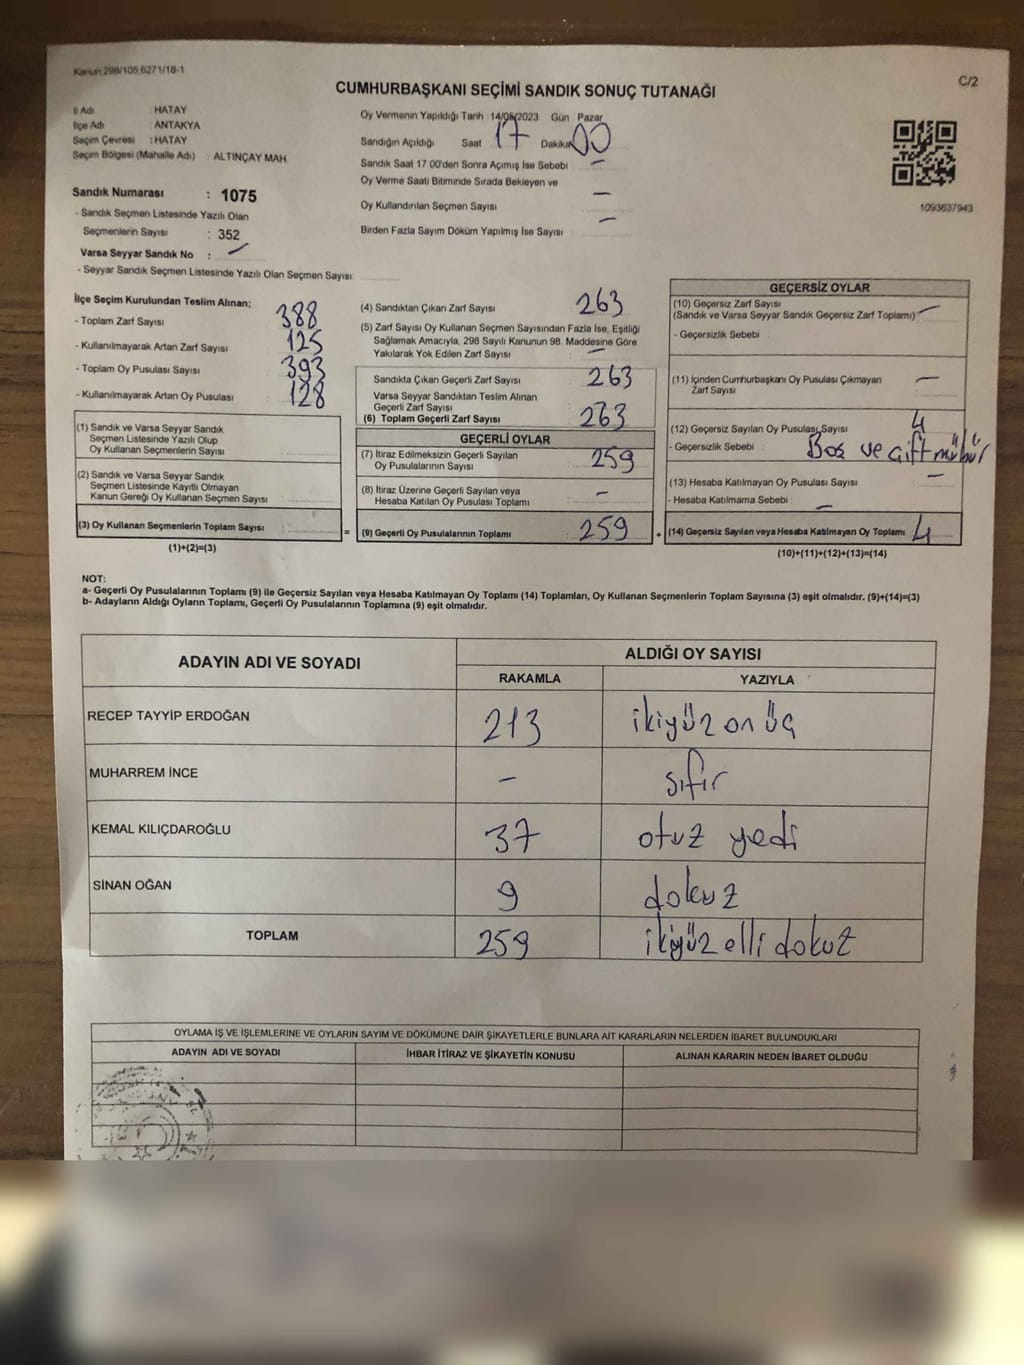 Kanun:298/105,6271/18-1
C/2
CUMHURBAŞKANI SEÇİMİ SANDIK SONUÇ TUTANAĞI
İl Adı : HATAY
İlçe Adı : ANTAKYA
Seçim Çevresi : HATAY
Seçim Bölgesi (Mahalle Adı) : ALTINÇAY MAH.
Sandık Numarası : 1075
- Sandık Seçmen Listesinde Yazılı Olan
Seçmenlerin Sayısı : 352
Varsa Seyyar Sandık No : -
- Seyyar Sandık Seçmen Listesinde Yazılı Olan Seçmen Sayısı:
Oy Vermenin Yapıldığı Tarih 14/05/2023 Gün Pazar
Sandığın Açıldığı Saat 17 Dakika 00
Sandık Saat 17.00'den Sonra Açımış İse Sebebi -
Oy Verme Saati Bitiminde Sırada Bekleyen ve
Oy Kullandırılan Seçmen Sayısı -
Birden Fazla Sayım Döküm Yapılmış İse Sayısı : -
1093637943
İlçe Seçim Kurulundan Teslim Alınan;
- Toplam Zarf Sayısı : 388
- Kullanılmayarak Artan Zarf Sayısı : 125
- Toplam Oy Pusulası Sayısı : 393
- Kullanılmayarak Artan Oy Pusulası : 128
(1) Sandık ve Varsa Seyyar Sandık
Seçmen Listesinde Yazılı Olup
Oy Kullanan Seçmenlerin Sayısı :
(2) Sandık ve Varsa Seyyar Sandık
Seçmen Listesinde Kayıtlı Olmayan
Kanun Gereği Oy Kullanan Seçmen Sayısı :
(3) Oy Kullanan Seçmenlerin Toplam Sayısı : =
(1)+(2)=(3)
(4) Sandıktan Çıkan Zarf Sayısı : 263
(5) Zarf Sayısı Oy Kullanan Seçmen Sayısından Fazla İse, Eşitliği
Sağlamak Amacıyla, 298 Sayılı Kanunun 98. Maddesine Göre
Yakılarak Yok Edilen Zarf Sayısı : -
Sandıkta Çıkan Geçerli Zarf Sayısı : 263
Varsa Seyyar Sandıktan Teslim Alınan
Geçerli Zarf Sayısı :
(6) Toplam Geçerli Zarf Sayısı : 263
GEÇERLİ OYLAR
(7) İtiraz Edilmeksizin Geçerli Sayılan
Oy Pusulalarının Sayısı : 259
(8) İtiraz Üzerine Geçerli Sayılan veya
Hesaba Katılan Oy Pusulası Toplamı : -
(9) Geçerli Oy Pusulalarının Toplamı : 259 +
GEÇERSİZ OYLAR
(10) Geçersiz Zarf Sayısı
(Sandık ve Varsa Seyyar Sandık Geçersiz Zarf Toplamı) : -
- Geçersizlik Sebebi :
(11) İçinden Cumhurbaşkanı Oy Pusulası Çıkmayan
Zarf Sayısı : -
(12) Geçersiz Sayılan Oy Pusulası Sayısı : 4
- Geçersizlik Sebebi : Boş ve çift mühür
(13) Hesaba Katılmayan Oy Pusulası Sayısı : -
- Hesaba Katılmama Sebebi : -
(14) Geçersiz Sayılan veya Hesaba Katılmayan Oy Toplamı : 4
(10)+(11)+(12)+(13)=(14)
NOT:
a- Geçerli Oy Pusulalarının Toplamı (9) ile Geçersiz Sayılan veya Hesaba Katılmayan Oy Toplamı (14) Toplamları, Oy Kullanan Seçmenlerin Toplam Sayısına (3) eşit olmalıdır. (9)+(14)=(3)
b- Adayların Aldığı Oyların Toplamı, Geçerli Oy Pusulalarının Toplamına (9) eşit olmalıdır.
ADAYIN ADI VE SOYADI
ALDIĞI OY SAYISI
RAKAMLA YAZIYLA
RECEP TAYYİP ERDOĞAN 213 ikiyüz on üç
MUHARREM İNCE - sıfır
KEMAL KILIÇDAROĞLU 37 otuz yedi
SİNAN OĞAN 9 dokuz
TOPLAM 259 ikiyüz elli dokuz
OYLAMA İŞ VE İŞLEMLERİNE VE OYLARIN SAYIM VE DÖKÜMÜNE DAİR ŞİKAYETLERLE BUNLARA AİT KARARLARIN NELERDEN İBARET BULUNDUKLARI
ADAYIN ADI VE SOYADI İHBAR İTİRAZ VE ŞİKAYETİN KONUSU ALINAN KARARIN NEDEN İBARET OLDUĞU